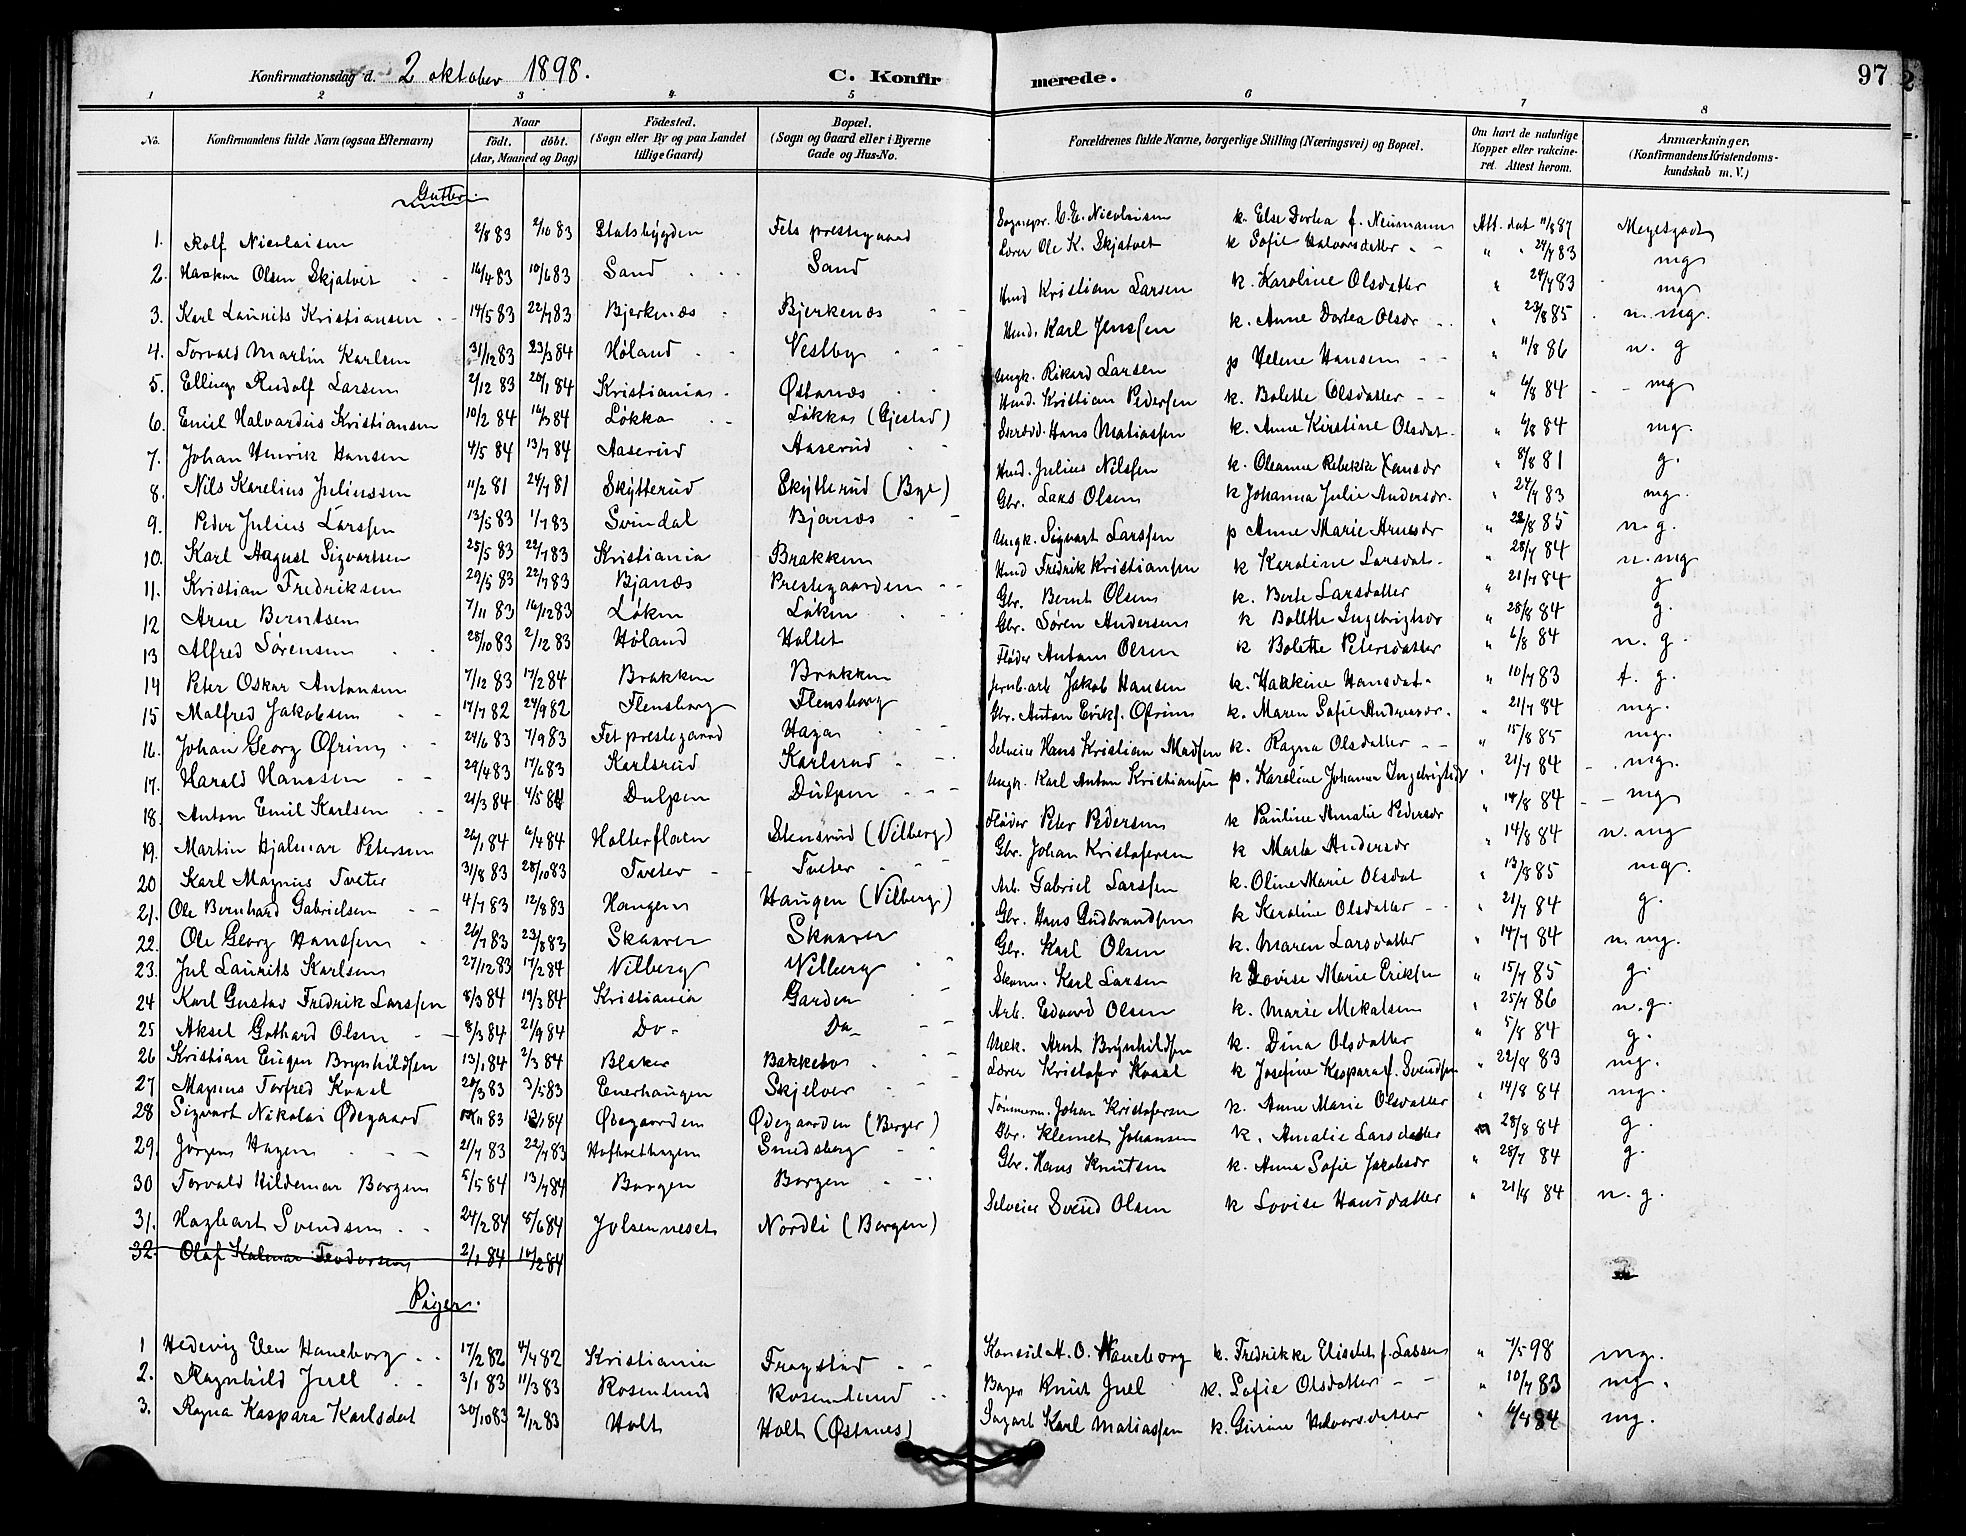 Konfirmationsdag d. 2 oktober 1898. C. Konfirmerede. 97
1 2 3 4 5 6 7 8
No. Konfirmandens fulde Navn (ogsaa Efternavn) Naar født. døbt. (Aar, Maaned og Dag) Fødested. (Sogn eller By og paa Landet tillige Gaard) Bopæl. (Sogn og Gaard eller i Byerne Gade og Hus-No. Forældrenes fulde Navne, borgerlige Stilling (Næringsvei) og Bopæl. Om havt de naturlige Kopper eller vakcineret. Attest herom. Anmærkninger, (Konfirmandens Kristendomskundskab m. V.)
Gutter.
1. Rolf Nicolaisen 2/8 83 2/10 83 Stalsbygden Fets prestegaard Sognepr. C. E. Nicolaisen k. Else Dortea f. Neumann Att. dat 11/8 87 Megetgodt
2. Haakon Olsen Skjatvet 16/4 83 10/6 83 Sand Sand Lærer Ole K. Skjatvet k Sofie Halvorsdatter " " 24/7 83 mg
3. Karl Laurits Kristiansen 14/5 83 22/7 83 Bjerkenæs Bjerkenæs Hmd Kristian Larsen k. Karoline Olsdatter " 24/7 83 mg
4. Torvald Martin Karlsen 31/12 83 23/3 84 Høland Vestby Hmd. Karl Jenssen k. Anne Dortea Olsdr " 23/8 85 n. mg.
5. Elling Rudolf Larsen 2/12 83 20/1 84 Kristiania Østanæs Ungk. Rikard Larsen p Helene Hansen " 11/8 86 n. g
6. Emil Halvardius Kristiansen 10/2 84 16/3 84 Løkka Løkka (Gjestad) Hmd. Kristian Pedersen k. Bolette Olsdatter " 6/8 84 mg
7. Johan Henrik Hansen 4/5 84 13/7 84 Aaserud Aaserud Skrædd. Hans Matiassen k. Anne Kirstine Olsdat. " 6/8 84 mg.
8. Nils Karelius Juliussen 11/2 81 24/7 81 Skytterud Skytterud (Bye) Hmd. Julius Nilssen k. Oleanne Rebekka Hansdr " 8/8 81 g.
9. Peder Julius Larssen 13/5 83 1/7 83 Svindal Bjanæs Gbr. Lars Olsen k Johanna Julie Andersdr. " 24/7 83 mg.
10. Karl August Sigvartsen 25/5 83 22/7 83 Kristiania Brakken Ungk. Sigvart Larssen p Anne Marie Arnesdr " 28/8 85 n. g.
11. Kristian Fredriksen 29/5 83 22/7 83 Bjanæs Prestegaarden Hmd Fredrik Kristiansen k Karoline Larsdat. " 28/7 84 n. mg
12 Arne Berntsen 7/11 83 16/12 83 Løken Løken Gbr. Bernt Olsen k. Berte Larsdatter " 21/7 84 g
13 Alfred Sørensen 28/10 83 2/12 83 Høland Holtet Gbr. Søren Andersen k Bolette Ingebrigtsdr " 28/8 84 g.
14 Peter Oskar Antonsen 7/12 83 17/2 84 Brakken Brakken Fløder Anton Olsen k Bolette Petersdatter " 6/8 84 n. g.
15 Malfred Jakobsen 17/7 82 24/9 82 Flensborg Flensborg Jernb.arb Jakob Hansen k. Hakkine Hansdat. " 10/7 83 t. g.
16. Johan Georg Ofrim 24/6 83 7/9 83 Fet prestegaard Haga Gbr. Anton Eriks. Ofrim k. Maren Sofie Andreasdr. " 21/7 84 mg.
17. Harald Hanssen 29/4 83 17/6 83 Karlsrud Karlsrud Selveier Hans Kristian Madsen k. Ragna Olsdatter " 15/8 85 mg.
18. Anton Emil Karlsen 21/3 84 4/5 84 Dulpen Dulpen Ungk. Karl Anton Kristiansen p. Karoline Johanna Ingebrigtsdr " 21/7 84 mg.
19. Martin Hjalmar Petersen 26/1 84 6/4 84 Holterfloen Stensrud (Vilberg) Fløder Peter Pedersen k Pauline Amalie Pedersdr " 14/8 84 mg
20 Karl Magnus Tveter 31/8 83 28/10 83 Tveter Tveter Gbr. Johan Kristofersen k Marte Andersdr " 14/8 84 n. mg
21. Ole Bernhard Gabrielsen 4/7 83 12/8 83 Haugen Haugen (Vilberg) Arb. Gabriel Larssen k. Oline Marie Olsdat " 13/8 85 mg.
22. Ole Georg Hanssen 26/7 83 23/8 83 Skaarer Skaarer Gbr. Hans Gudbrandsen k Karoline Olsdatter " 21/7 84 g.
23. Jul Laurits Karlsen 27/12 83 17/2 84 Vilberg Vilberg Gbr. Karl Olsen k. Maren Larsdatter " 14/7 84 n. mg.
24 Karl Gustav Fredrik Larssen 8/3 84 19/3 84 Kristiania Garden Skom. Karl Larsen k Lovise Marie Eriksen " 15/7 85 g.
25 Aksel Gothard Olsen 8/3 84 21/9 84 Do. Do. Arb. Edvard Olsen k. Marie Mekalsen " 25/7 86 n. g.
26 Kristian Eugen Brynhildsen 13/1 84 2/3 84 Blaker Bakkebo Mek. Arnt Brynhildsen k. Dina Olsdatter " 5/8 84 g.
27 Magnus Torfred Kvaal 20/3 83 3/5 83 Enerhaugen Skjelver Lærer Kristofer Kvaal k Josefine Kaspara f. Svendsen " 22/8 83 mg.
28 Sigvart Nikolai Ødegaard /11 83 /1 84 Ødegaarden Ødegaarden (Berger) Tømmerm. Johan Kristofersen k. Anne Marie Olsdatter " 14/8 84 mg.
29. Jørgen Hagen 21/4 83 22/7 83 Smedsberg Gbr. Klemet Johansen k. Amalie Larsdatter 28/8 84 g.
30 Torvald Hildemar Borgen 5/5 84 13/7 84 Borgen Borgen Gbr. Hans Knutsen k. Anne Sofie Jakobsdr " 28/7 84 g.
31. Hagbart Svendsen 24/2 84 8/6 84 Jølsenneset Nordli (Borgen) Selveier Svend Olsen k Lovise Hansdatter " 21/8 84 n. g.
32. Olaf Kalmar Teodorsen 2/1 84 10/2 84
Piger.
1 Hedevig Elen Haneborg 17/2 82 4/4 82 Kristiania Frogstad Konsul H. O. Haneborg k. Fredrikke Elisabet f. Lassen " 7/5 98 mg.
2. Ragnhild Juel 3/1 83 11/3 83 Rosenlund Rosenlund Bager Knut Juel k. Sofie Olsdatter " 10/7 83 mg.
3. Ragna Kaspara Karlsdat 30/10 83 2/12 83 Holt Holt (Østanes) Sagarb Karl Matiassen k. Gurine Halvorsdatter " 84 mg.